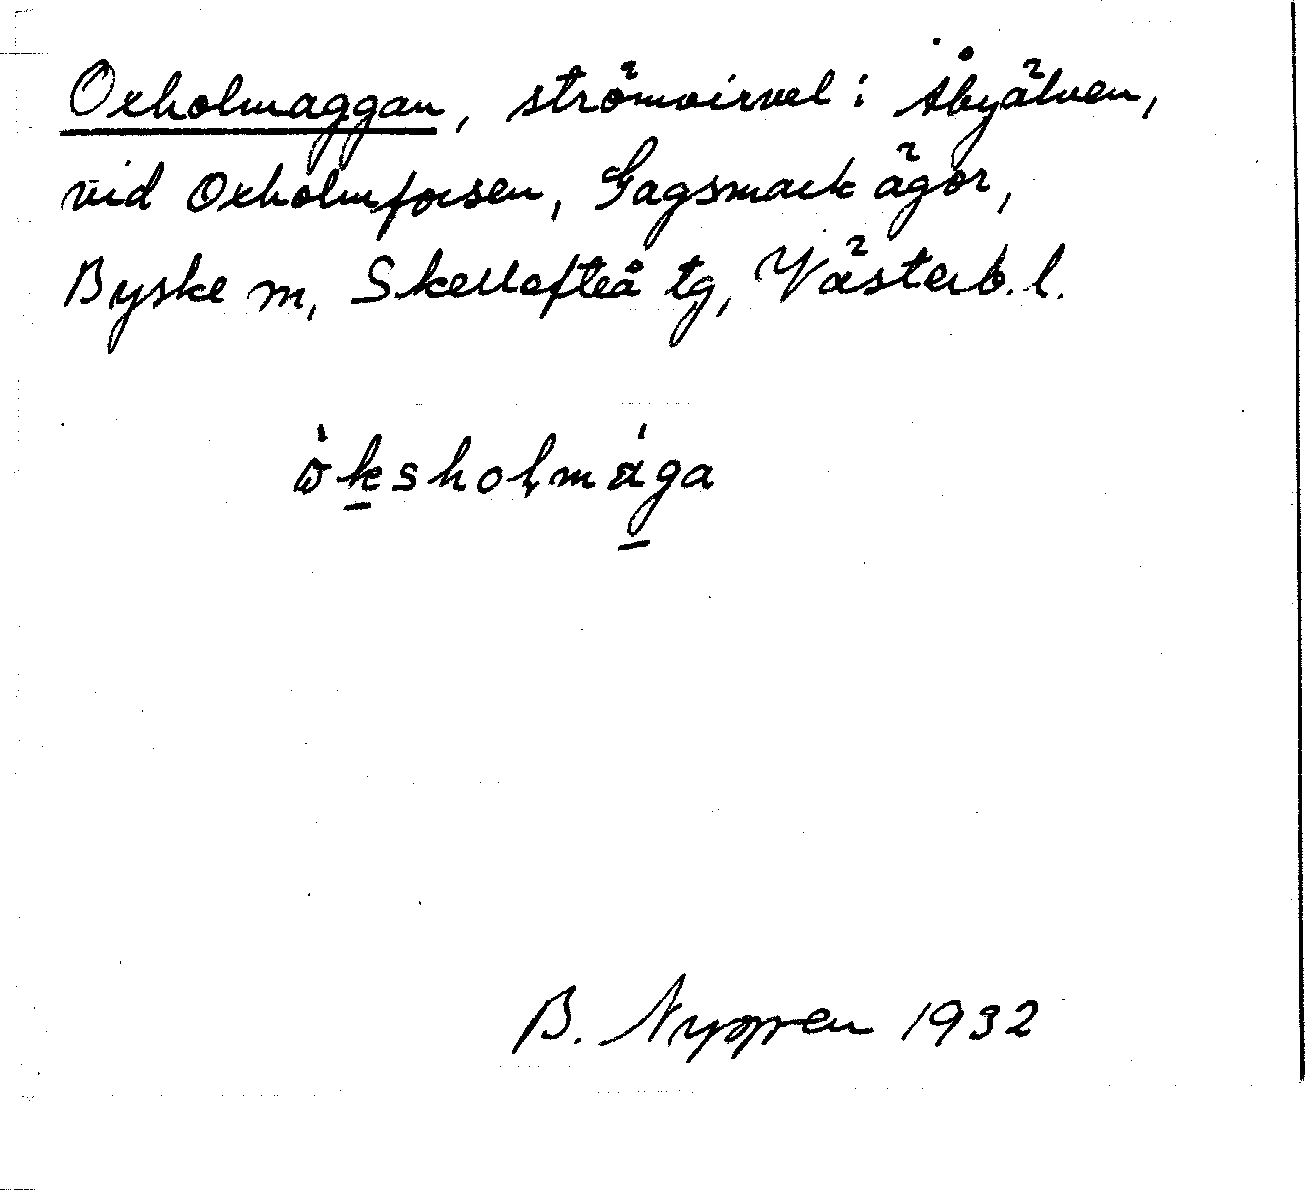 Oxholmaggan, strömvirvel i Åbyälven,
vid Oxholmforsen, Gagsmark ägor,
Byske sn, Skellefteå tg, Västerb. l.
òksholmága
B. Nyppen 1932